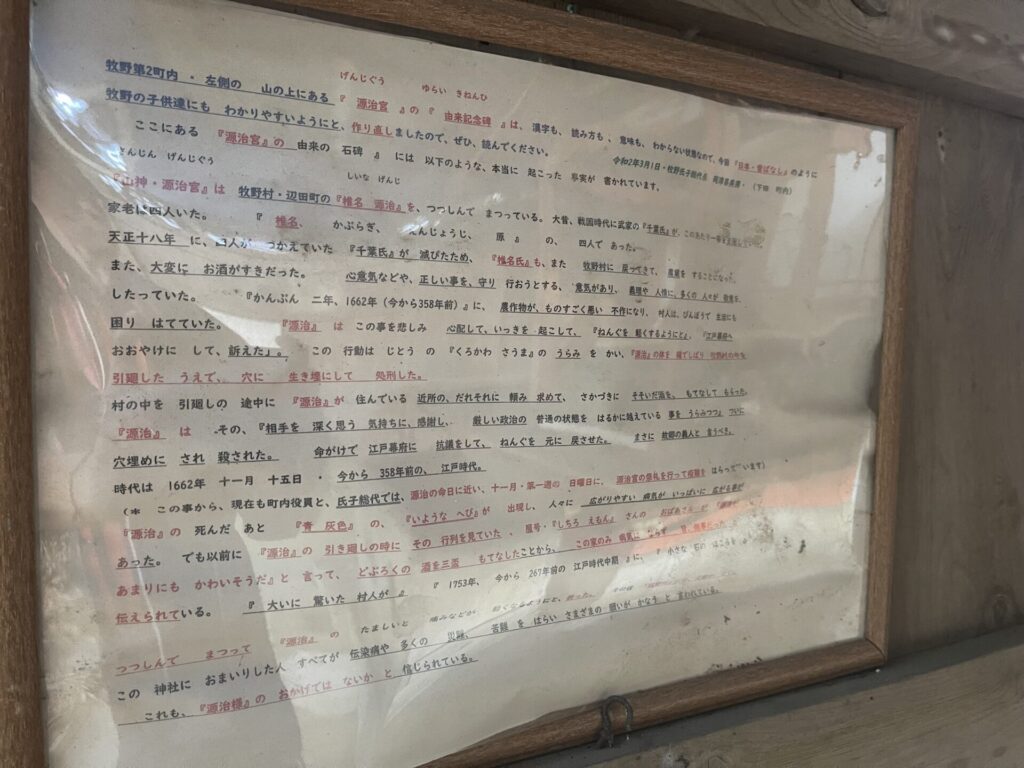 げんじぐう ゆらい きねんひ
牧野第2町内 ・ 左側の 山の上にある 『 源治宮 』の 『 由来記念碑 』は、 漢字も、 読み方も 、 意味も、 わからない状態なので、今回 『日本・昔ばなし』のように
牧野の子供達にも わかりやすいようにと、作り直しましたので、ぜひ、読んでください。
令和2年3月1日・牧野氏子総代長 (下田 町内)
ここにある 『源治宮』の 由来の 石碑 』 には 以下のような、本当に 起こった 事実が 書かれています。
さんじん げんじぐう しいな げんじ
『山神・源治宮』は 牧野村・辺田町の『椎名 源治』を、つつしんで まつっている。 大昔、戦国時代に武家の『千葉氏』が、このあたり一帯を支配して
家老は四人いた。 『 椎名、 かぶらぎ、 んじょうじ、 原 』 の、 四人で あった。
天正十八年 に、四人が つかえていた 『千葉氏』が 滅びたため、 『椎名氏』も、また 牧野村に 戻ってきて、 農業を することになった。
また、大変に お酒がすきだった。 心意気などや、正しい事を、守り 行おうとする、 意気があり、 義理や 人情に、多くの 人々が 敬意を、
したっていた。 『かんぶん 二年、1662年(今から358年前)』に、 農作物が、ものすごく悪い 不作になり、 村人は、びんぼうで 生活にも
困り はてていた。 『源治』 は この事を悲しみ 心配して、いっきを 起こして、 『ねんぐを 軽くするようにと』、 『江戸幕府へ
おおやけに して、訴えた」。 この 行動は じとう の 『くろかわ さうま』の うらみ を かい、『源治』の体を 縄でしばり 牧野村の中を
引廻した うえで、 穴に 生き埋にして 処刑した。
村の中を 引廻しの 途中に 『源治』が 住んでいる 近所の、だれそれに 頼み 求めて、 さかづきに そそいだ酒を、 もてなして もらった。
『源治』 は その、『相手を 深く思う 気持ちに、感謝し、 厳しい政治の 普通の状態を はるかに越えている 事を うらみつつ』 ついに
穴埋めに され 殺された。 命がけで 江戸幕府に 抗議をして、 ねんぐを 元に 戻させた。 まさに 故郷の義人と 言うべき。
時代は 1662年 十一月 十五日 ・ 今から 358年前の、 江戸時代。
(* この事から、現在も町内役員と、氏子総代では、源治の今日に近い、十一月・第一週の 日曜日に、 源治宮の祭礼を行って疫難を はらっています)
『源治』の 死んだ あと 『青 灰色』 の、 『いような へび』が 出現し、 人々に 広がりやすい 病気が いっぱいに 広がる事が
あった。 でも以前に 『源治』の 引き廻しの時に その 行列を見ていた 、 屋号・『しちろ えもん』 さんの おばあさん が 『源治が
あまりにも かわいそうだ』と 言って、 どぶろくの 酒を三盃 もてなしたことから、 この家のみ 病気に ならず 皆、無事だった
伝えられている。 『 大いに 驚いた 村人が 』 『 1753年、 今から 267年前の 江戸時代中期 』に、 『 小さな 石の ほこらを
つつしんで まつって 『源治』 の たましいと 悩みなどが、 軽くなるようにと、祈った。
この 神社に おまいりした人 すべてが 伝染病や 多くの 災難、 苦難 を はらい さまざまの 願いが かなう と 言われている。
これも、『源治様』の おかげでは ないか と 信じられている。